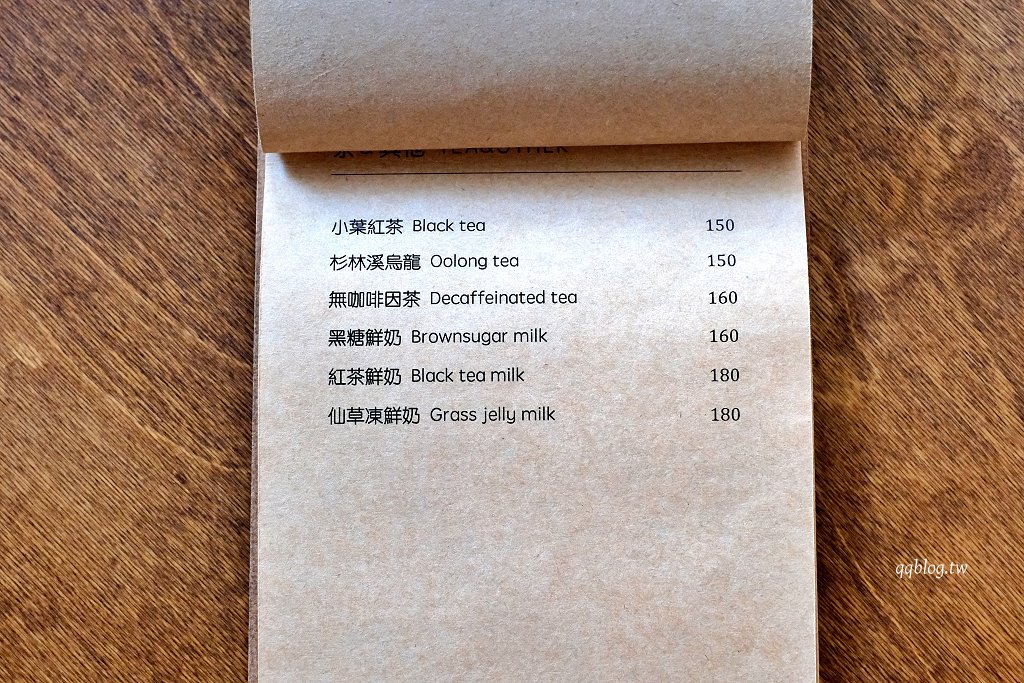 茶&其他 TEA&OTHER
小葉紅茶 Black tea 150
杉林溪烏龍 Oolong tea 150
無咖啡因茶 Decaffeinated tea 160
黑糖鮮奶 Brownsugar milk 160
紅茶鮮奶 Black tea milk 180
仙草凍鮮奶 Grass jelly milk 180
qqblog.tw